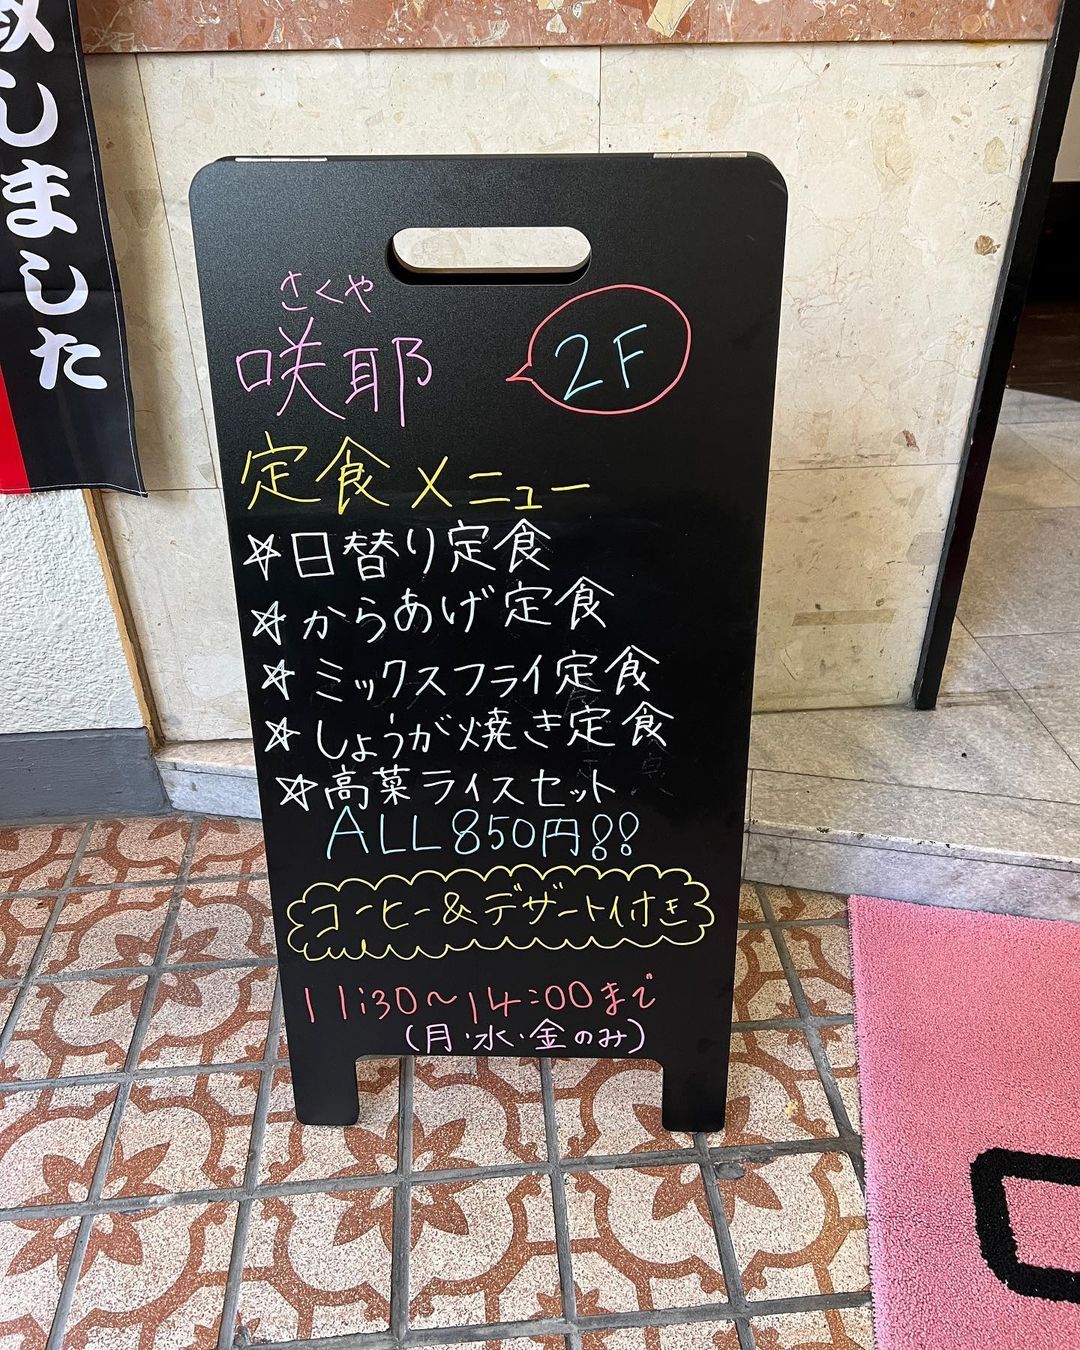 しました
さくや
咲耶 2F
定食メニュー
☆日替り定食
☆からあげ定食
☆ミックスフライ定食
☆しょうが焼き定食
☆高菜ライスセット
ALL 850円!!
コーヒー&デザート付き
11:30〜14:00まで
(月・水・金のみ)